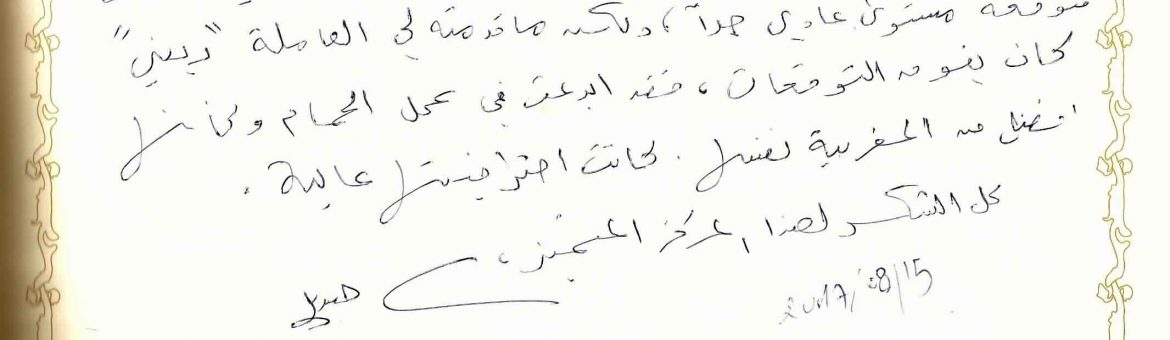 متوقعة مستوى عادي جداً، ولكن ما قدمته لي العاملة "ريني"
كان يفوق التوقعات، فقد ابدعت في عمل الحمام وكأنها
افضل من المغربية نفسها. كانت احترافيتها عالية.
كل الشكر لهذا المركز المتميز،
2017/08/15